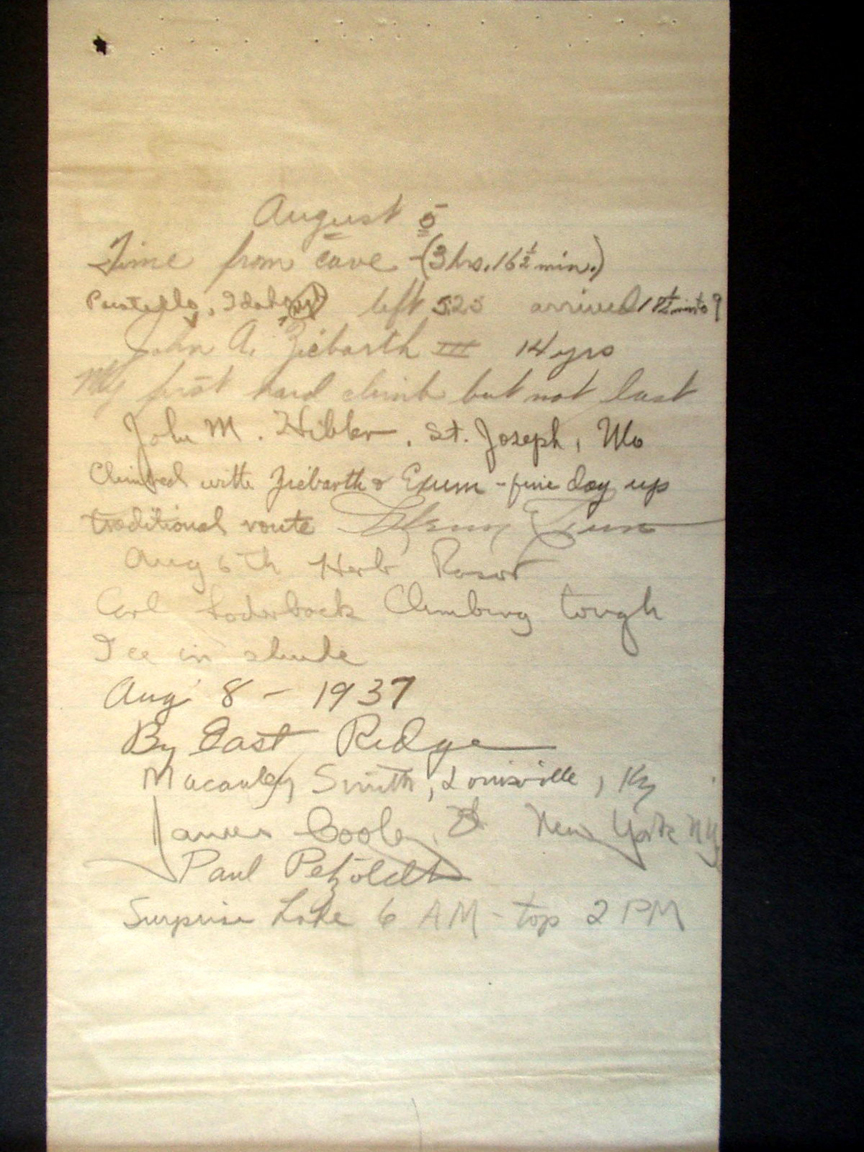 August 5
Time from cave - (3 hrs. 16½ min.)
Pocatello, Idaho left 5:25 arrived 1½ min to 9
John A. Ziebarth III 14 yrs
My first hard climb but not last
John M. Hibler, St. Joseph, Mo
Climbed with Ziebarth & Exum - fine day up
traditional route Glenn Exum
Aug 6th Herb
Carl Loderback Climbing tough
Ice in shute
Aug 8 - 1937
By East Ridge
Macauley Smith, Louisville, Ky
James Cooley New York NY
Paul Petzoldt
Surprise Lake 6 AM - top 2 PM